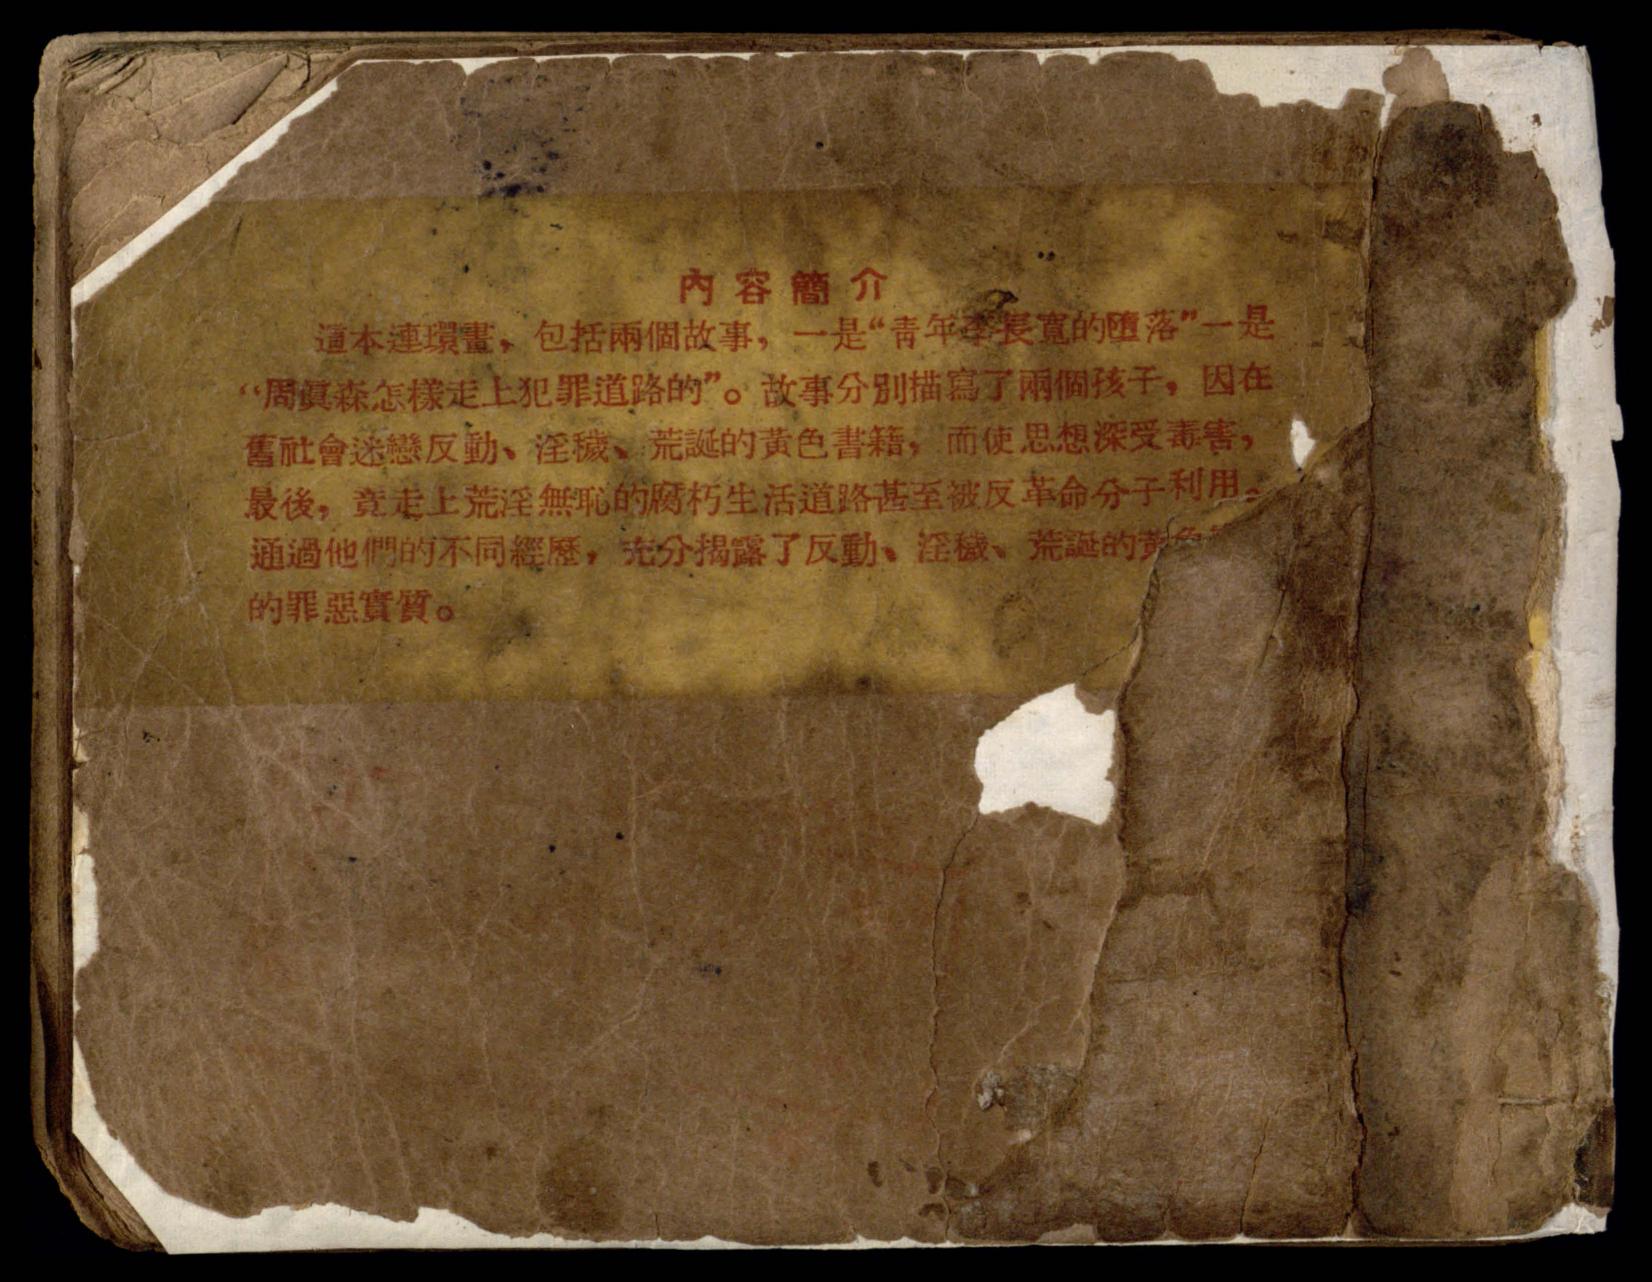 內容簡介
這本連環畫，包括兩個故事，一是“靑年李長寬的墮落”一是
“周眞森怎樣走上犯罪道路的”。故事分別描寫了兩個孩子，因在
舊社會迷戀反動、淫穢、荒誕的黃色書籍，而使思想深受毒害，
最後，竟走上荒淫無恥的腐朽生活道路甚至被反革命分子利用。
通過他們的不同經歷，充分揭露了反動、淫穢、荒誕的黃色
的罪惡實質。